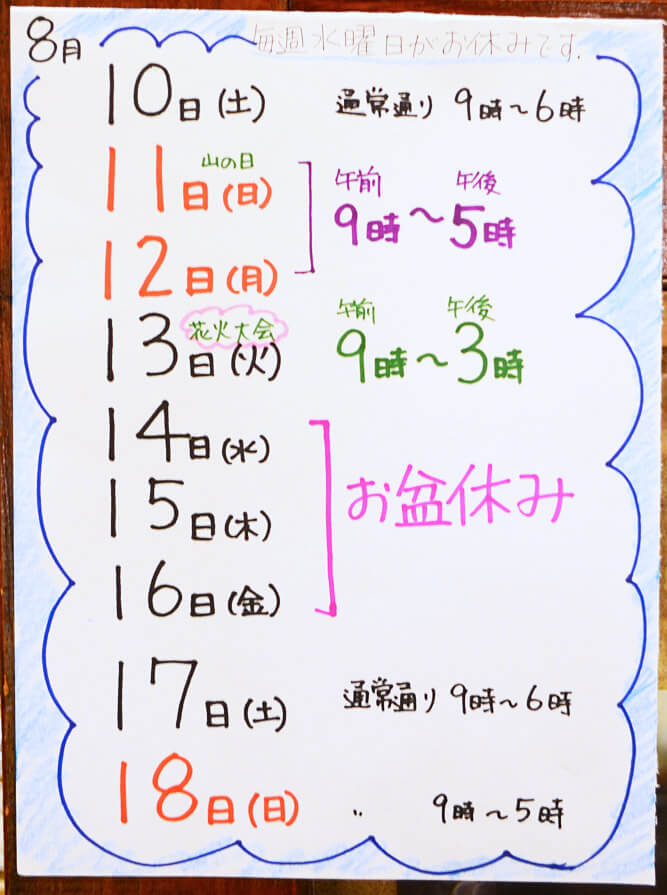 8月
毎週水曜日がお休みです.
10日(土) 通常通り 9時～6時
山の日 午前 午後
11日(日) 9時～5時
12日(月)
花火大会 午前 午後
13日(火) 9時～3時
14日(水)
15日(木) お盆休み
16日(金)
17日(土) 通常通り 9時～6時
18日(日) 〃 9時～5時